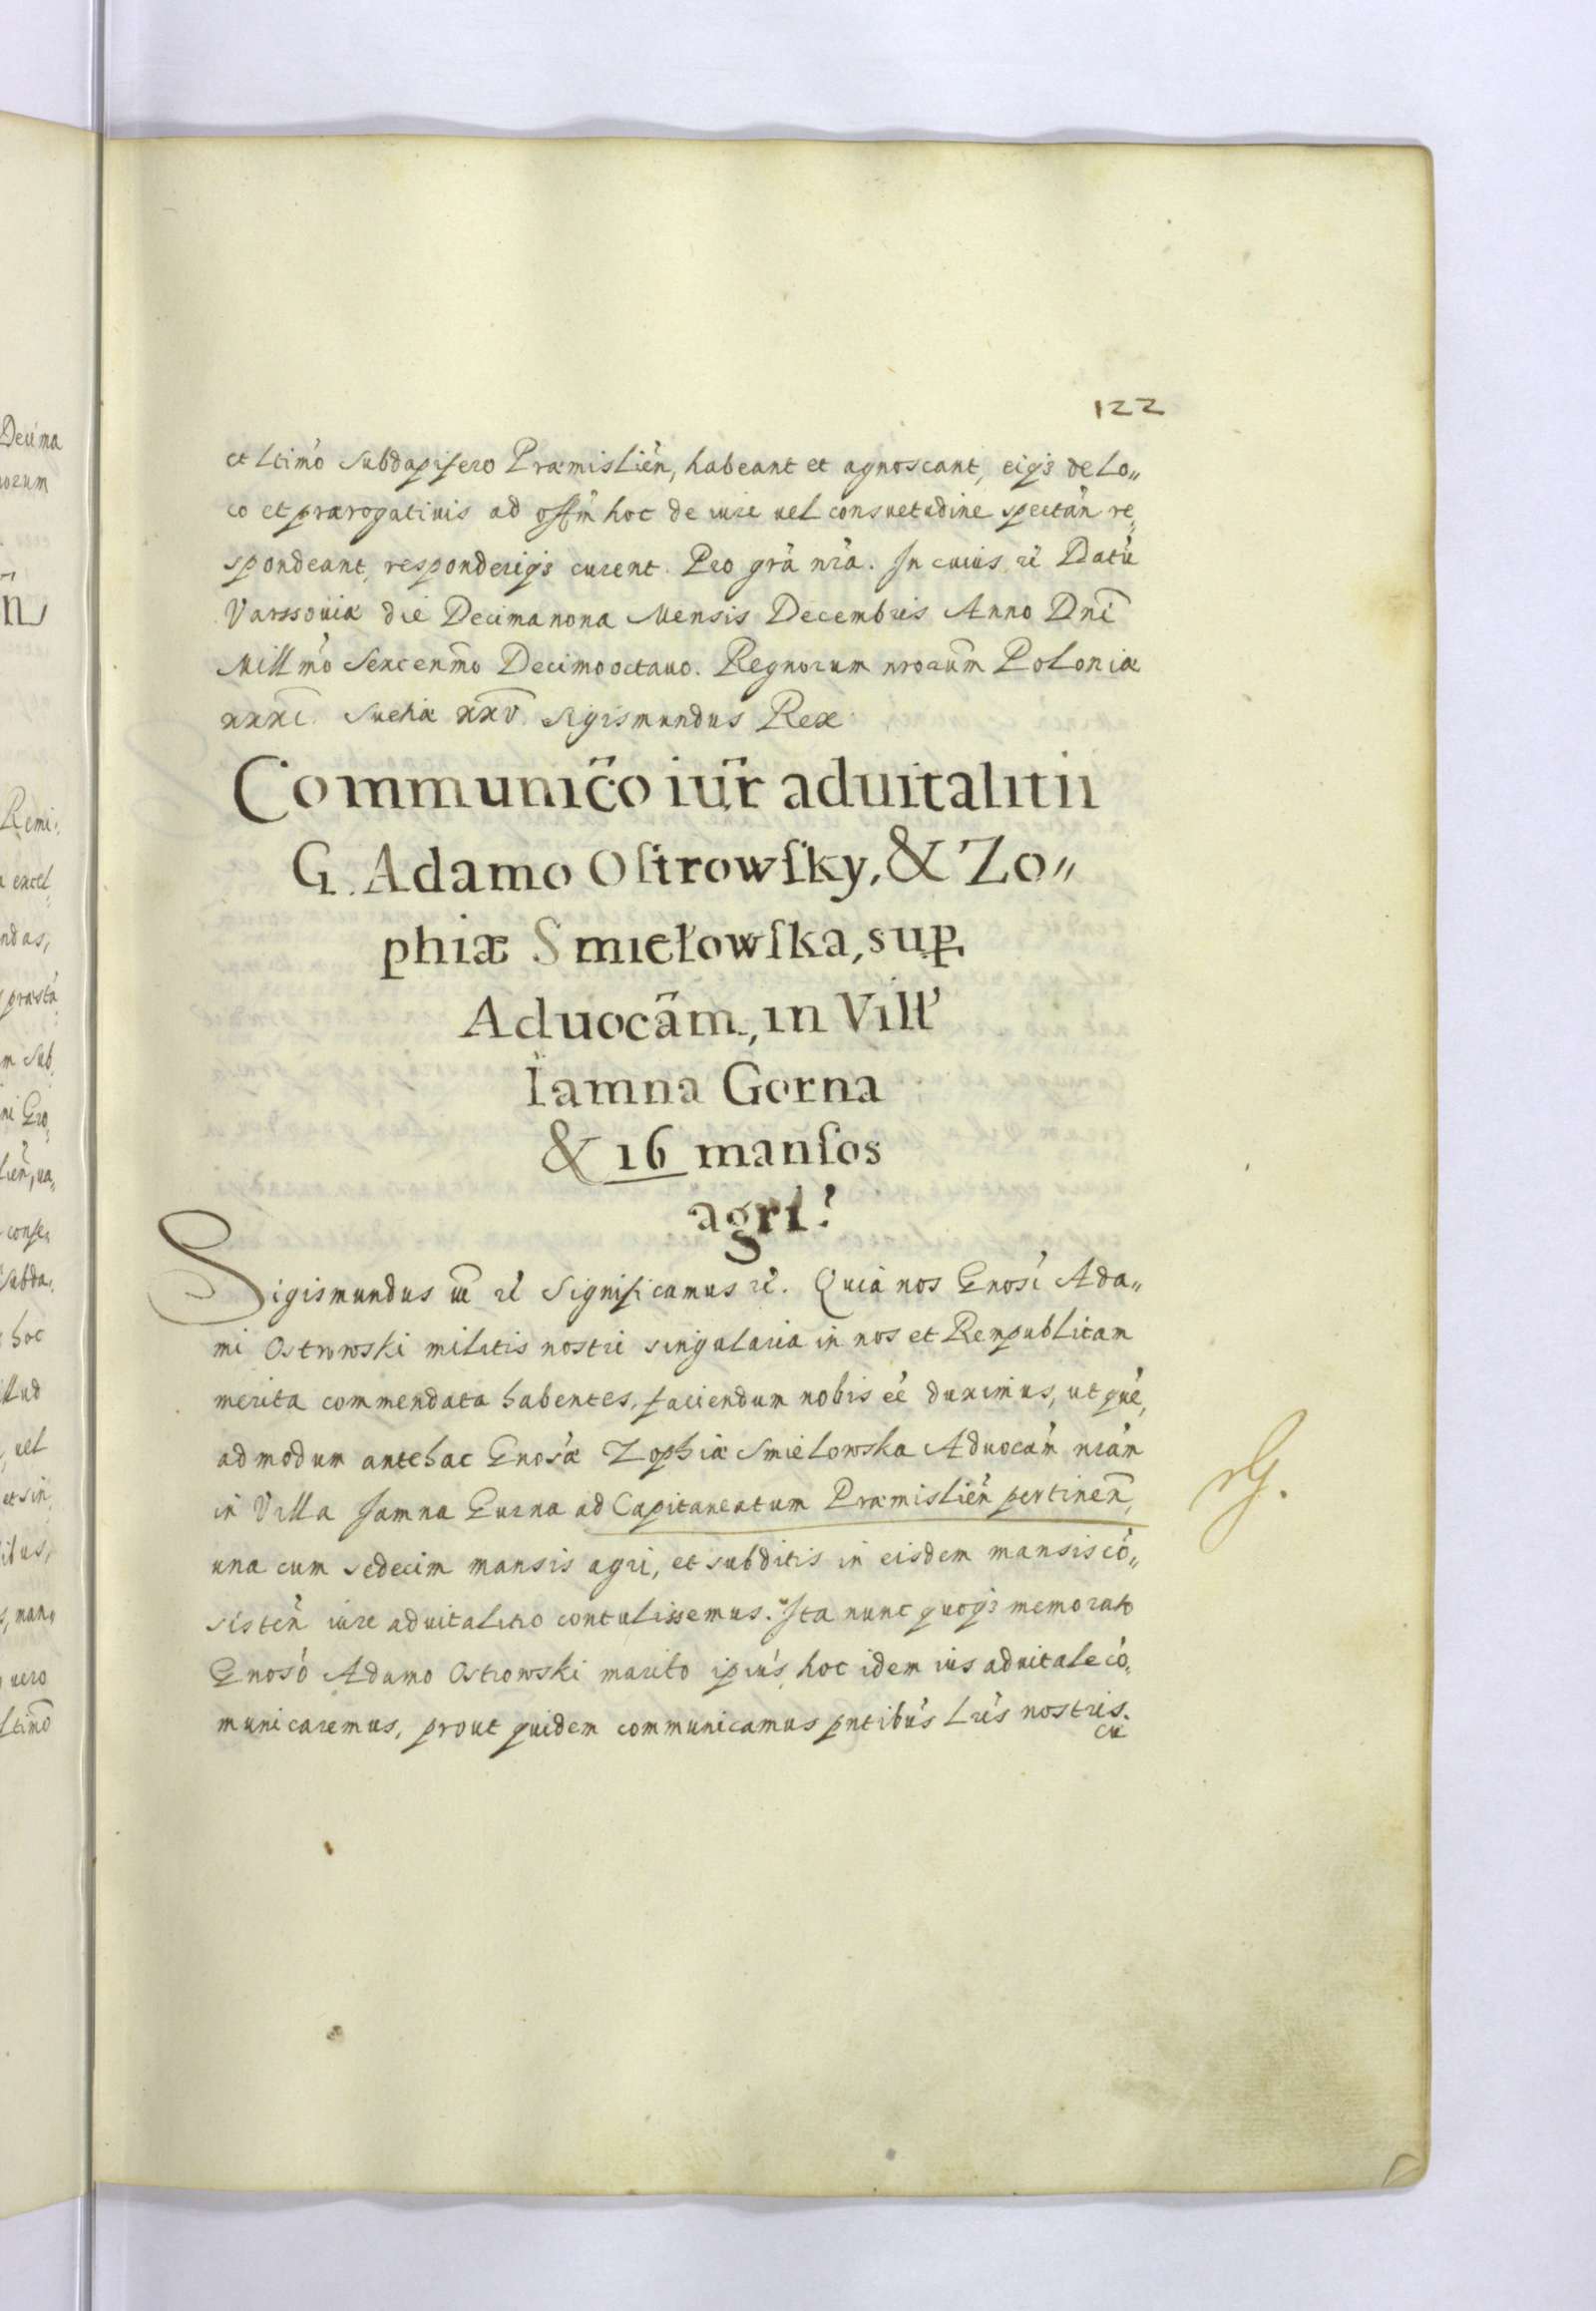 122
et Ltimo Subdapifero Præmislien̄, habeant et agnoscant, eiq3 de Lo„
co et prærogatiuis ad off̄m hoc de iure uel consuetudine spectan̄ re„
spondeant, responderiq3 curent. Pro grã nrã. In cuius rei Datũ
Varssouiæ die Decimanona Mensis Decembris Anno Dn̄i
Mill̄mo Sexcen̄mo Decimooctauo. Regnorum nrorum̄ Poloniæ
xxxi. Sueciæ xxv. Sigismundus Rex
Communic̃o iur̃ aduitalitii
G. Adamo Oſtrowſky, & Zo„
phiæ Smiełowſka, sup.
Aduocãm, in Vill'
Iamna Gorna
& 16 manſos
agri.
Sigismundus iii r̃ Significamus r̃. Quia nos Gnosi Ada„
mi Ostrowski militis nostri singularia in nos et Rempublicam
merita commendata habentes, faciendum nobis eẽ duximus, ut què„
admodum antehac Gnosæ Zophiæ Smielowska Aduocãm nrãm
in Villa Jamna Gurna ad Capitaneatum Præmislien̄ pertinen̄,
una cum sedecim mansis agri, et subditis in eisdem mansis cõ„
sisten̄ iure aduitalitio contulissemus. Ita nunc quoq3 memorato
Gnoso Adamo Ostrowski marito ipius, hoc idem ius aduitale cõ„
municaremus, prout quidem communicamus pñtibus Lris nostris.
cu